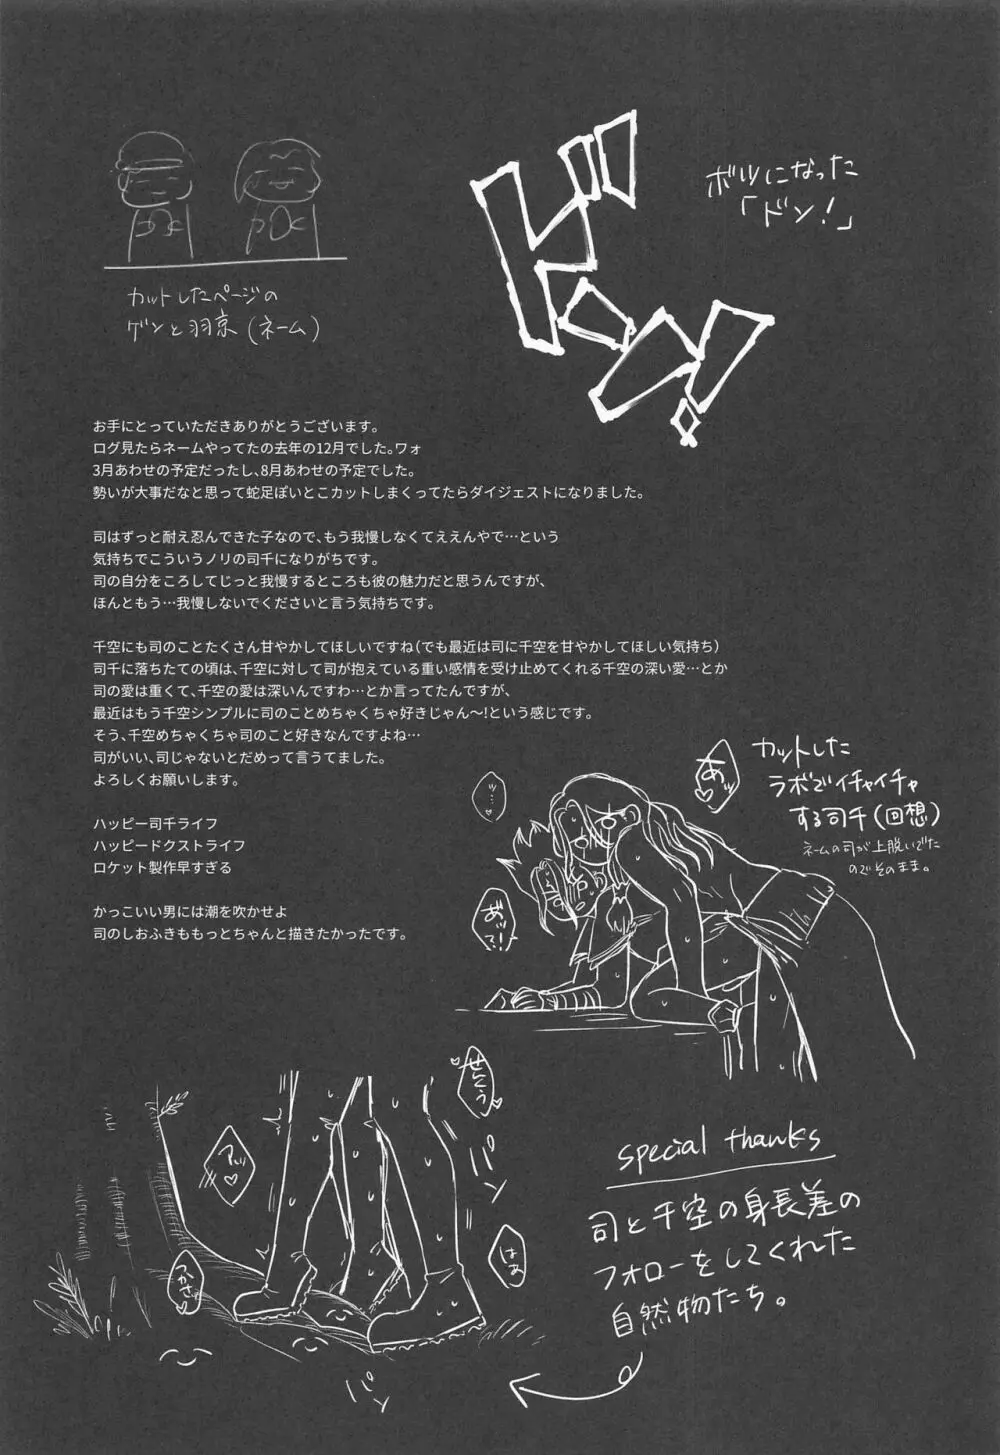 ボツになった
「ドン!」
ドン!
カットしたページの
ゲンと羽京(ネーム)
お手にとっていただきありがとうございます。
ログ見たらネームやってたの去年の12月でした。ワォ
3月あわせの予定だったし、8月あわせの予定でした。
勢いが大事だなと思って蛇足ぽいとこカットしまくってたらダイジェストになりました。
司はずっと耐え忍んできた子なので、もう我慢しなくてええんやで…という
気持ちでこういうノリの司千になりがちです。
司の自分をころしてじっと我慢するところも彼の魅力だと思うんですが、
ほんともう…我慢しないでくださいと言う気持ちです。
千空にも司のことたくさん甘やかしてほしいですね(でも最近は司に千空を甘やかしてほしい気持ち)
司千に落ちたての頃は、千空に対して司が抱えている重い感情を受け止めてくれる千空の深い愛…とか
司の愛は重くて、千空の愛は深いんですわ…とか言ってたんですが、
最近はもう千空シンプルに司のことめちゃくちゃ好きじゃん〜!という感じです。
そう、千空めちゃくちゃ司のこと好きなんですよね…
司がいい、司じゃないとだめって言うてました。
よろしくお願いします。
ハッピー司千ライフ
ハッピードクストライフ
ロケット製作早すぎる
かっこいい男には潮を吹かせよ
司のしおふきももっとちゃんと描きたかったです。
カットした
ラボでイチャイチャ
する司千(回想)
ネームの司が上脱いでた
のでそのまま。
あッ♡
ッ…♡
せんくう
パン
アッ♡
はぁ
つかさ♡
パン
special thanks
司と千空の身長差の
フォローをしてくれた
自然物たち。